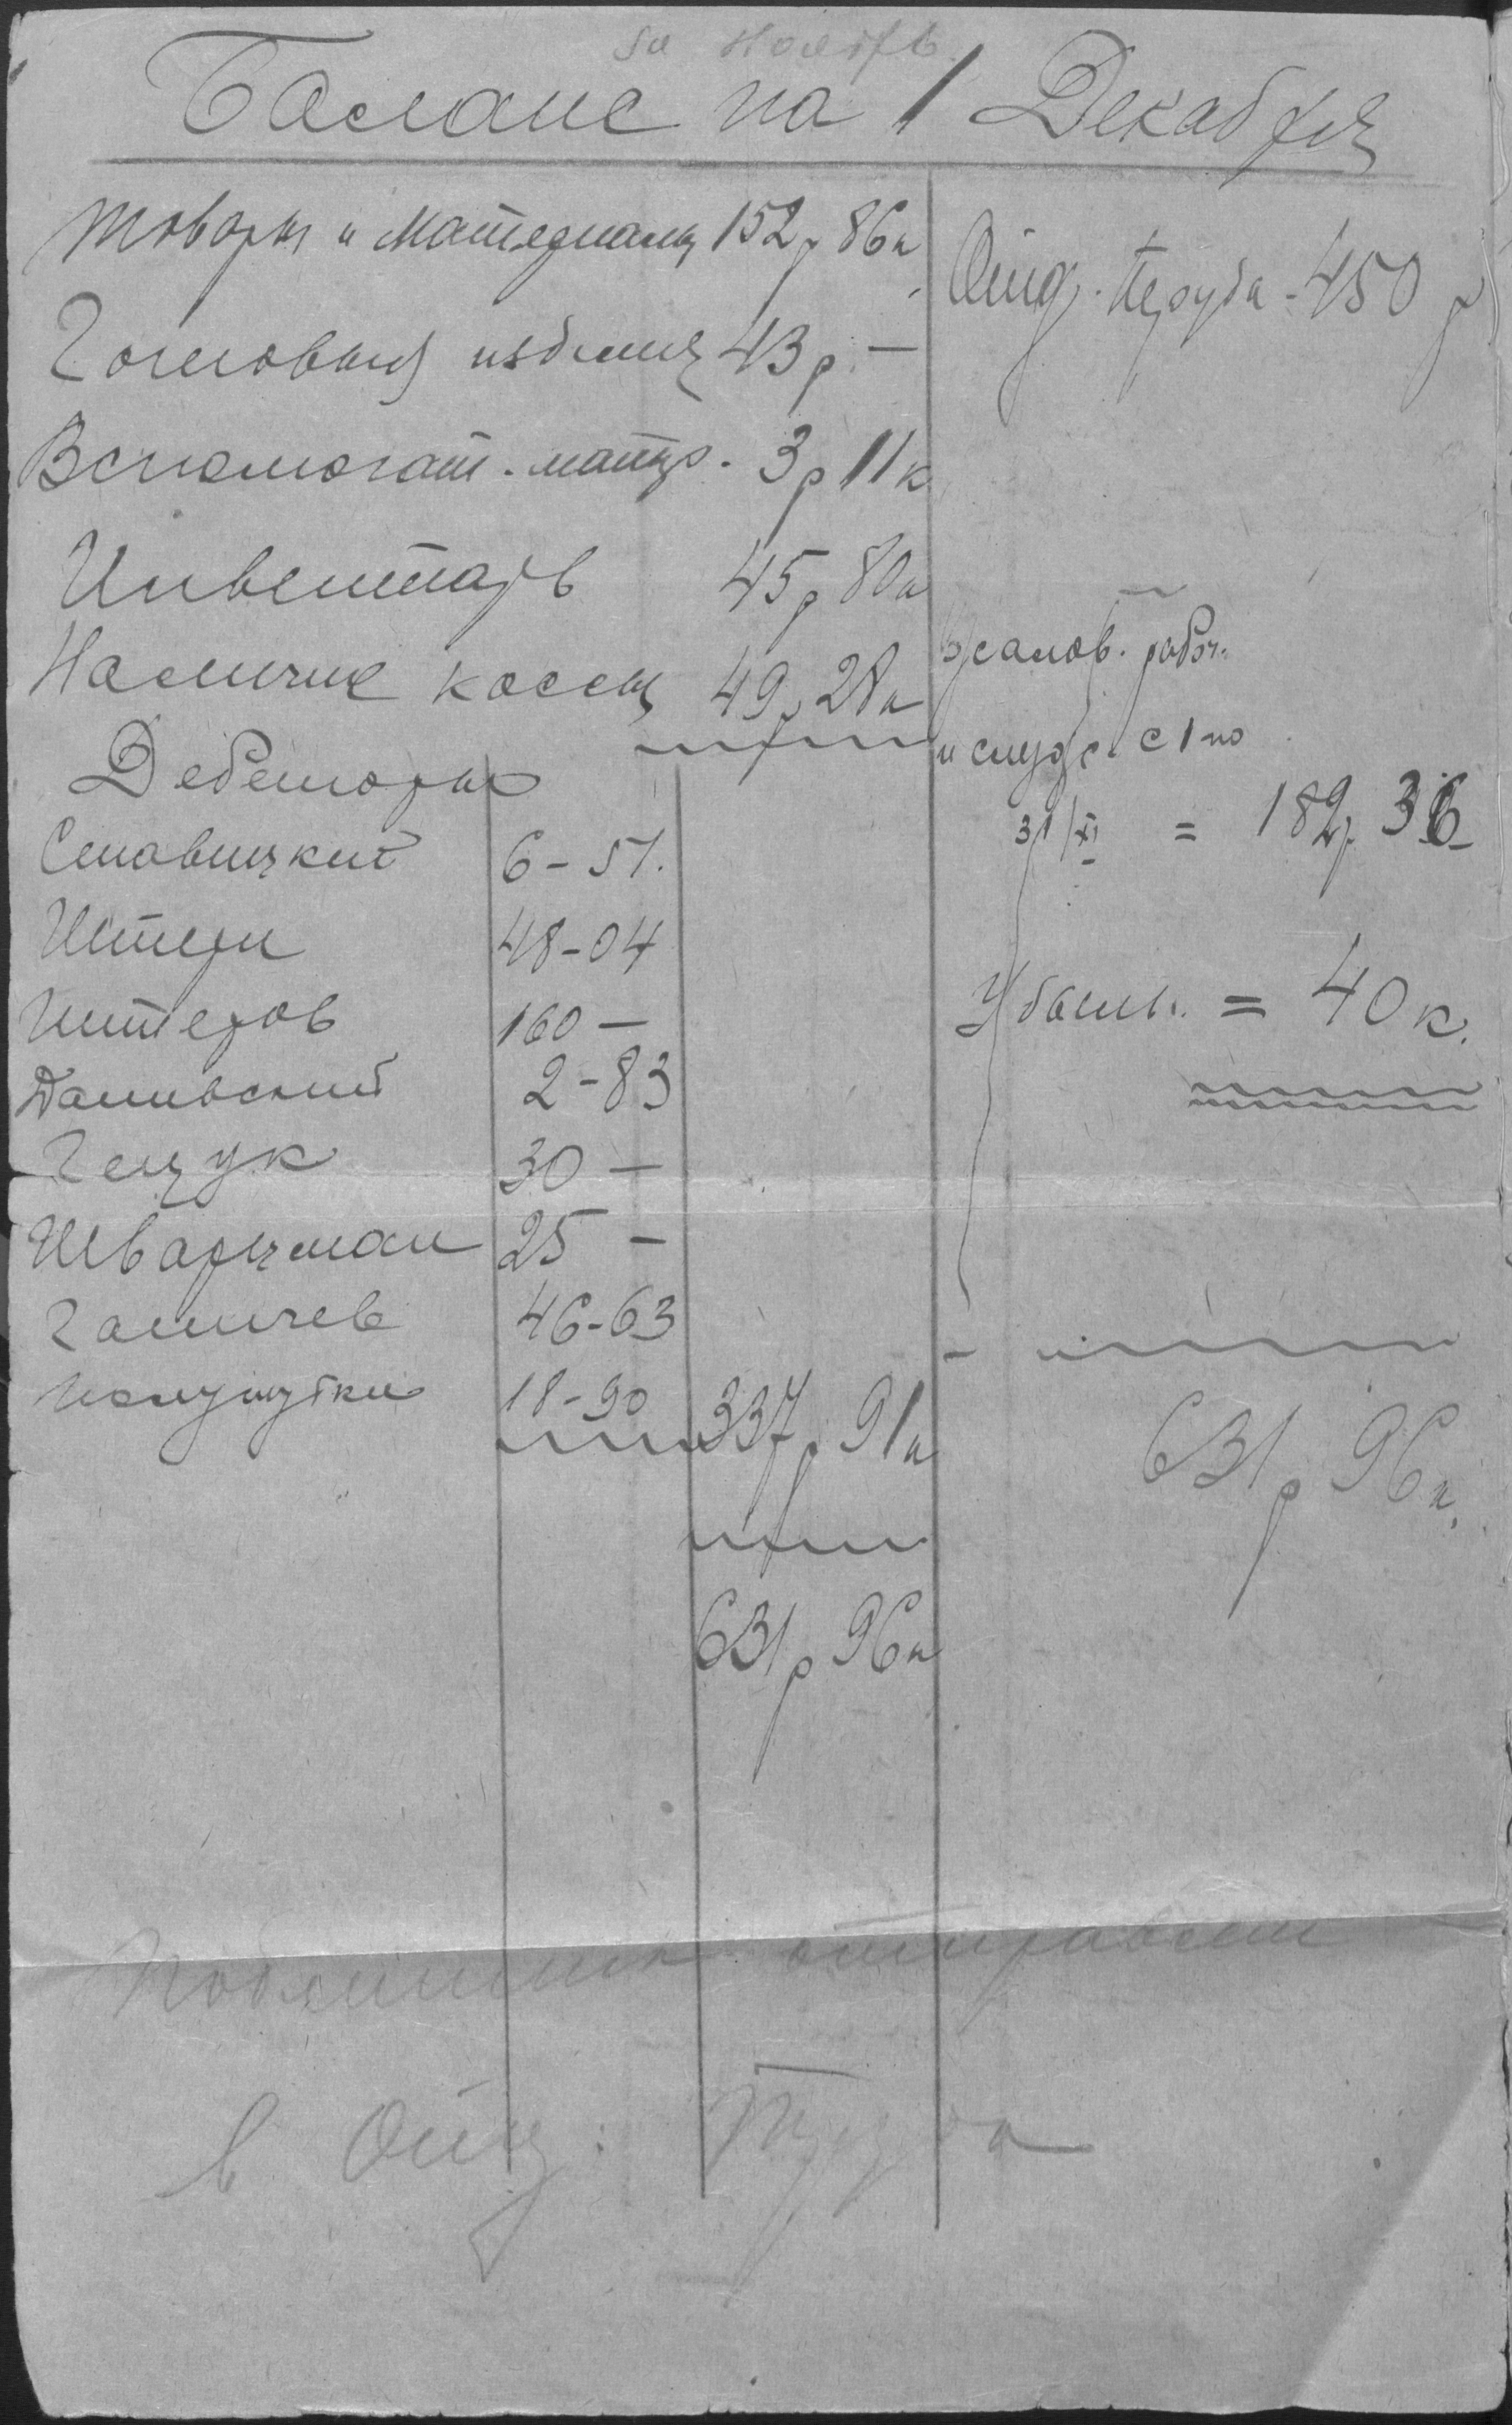 за Ноябрь
Баланс на 1 Декабря
Товары и Материалы 152р 86к
Готовыя изделия 43р. —
Вспомогат. матер. 3р 11к
Инвентарь 45р 80к
Наличие кассы 49р 28к
Дебеторы
Ставицкий 6-51.
Штерн 48-04
160 —
2-83
30 —
Шварцман 25 —
46-63
18-90 337р 91к
631р 96к
Отд. Труда - 450 р
жалов. рабоч.
с 1 по
31/XI = 182р. 36
Убыт. = 40к.
631р 96к.
Подлинник отправлен
в Отд: Труда